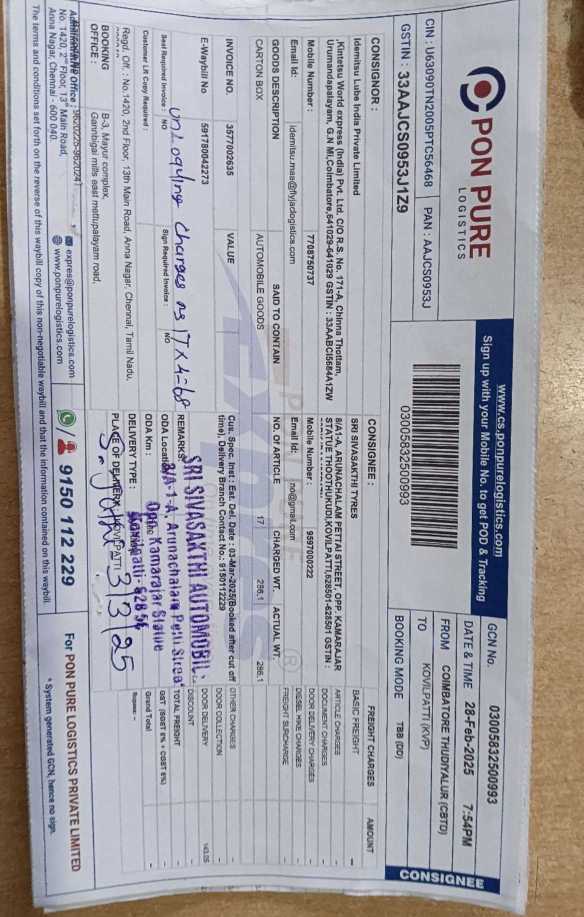 PON PURE
LOGISTICS
www.cs.ponpurelogistics.com
Sign up with your Mobile No. to get POD & Tracking
CIN : U63090TN2005PTC56468 PAN : AAJCS0953J
GSTIN : 33AAJCS0953J1Z9
03005832500993
GCN No. 03005832500993
DATE & TIME 28-Feb-2025 7:54PM
FROM COIMBATORE THUDIYALUR (CBTD)
TO KOVILPATTI (KVP)
BOOKING MODE TBB (DD)
CONSIGNEE
CONSIGNOR :
Idemitsu Lube India Private Limited
,Kintetsu World express (India) Pvt. Ltd. C/O R.S. No. 171-A, Chinna Thottam,
Urumandapalayam, G.N Ml,Coimbatore,641029-641029 GSTIN : 33AABCI5684A1ZW
Mobile Number : 7708750737
Email Id: idemitsu.maa@flyjaclogistics.com
CONSIGNEE :
SRI SIVASAKTHI TYRES
8/A1-A, ARUNACHALAM PETTAI STREET, OPP. KAMARAJAR
STATUE THOOTHUKUDI,KOVILPATTI,628501-628501 GSTIN :
Mobile Number : 9597000222
Email Id: no@gmail.com
GOODS DESCRIPTION SAID TO CONTAIN NO. OF ARTICLE CHARGED WT. ACTUAL WT.
CARTON BOX AUTOMOBILE GOODS 17 286.1 286.1
INVOICE NO. VALUE
3577002635
E-Waybill No 591780042273
Cus. Spec. Inst : Est. Del. Date : 03-Mar-2025(Booked after cut off
time), Delivery Branch Contact No.: 9150112229
Seal Required Invoice : NO Sign Required Invoice : NO
Customer LR Copy Required :
unloading charges as 17 x 4 = 68
REMARKS:
ODA Location
ODA Km :
DELIVERY TYPE :
PLACE OF DELIVERY : KOVILPATTI
SRI SIVASAKTHI AUTOMOBIL
8/A-1-A, Arunachalam Pettai Street
Opp. Kamarajar Statue
3/3/25
FREIGHT CHARGES AMOUNT
BASIC FREIGHT -
ARTICLE CHARGES
DOCUMENT CHARGES -
DOOR DELIVERY CHARGES -
DIESEL HIKE CHARGES -
FREIGHT SURCHARGE -
OTHER CHARGES -
DOOR COLLECTION -
DOOR DELIVERY 143.05
DISCOUNT -
TOTAL FREIGHT -
GST (SGST 6% + CGST 6%) -
Grand Total -
Rupees: -
Regd. Off. : No.1420, 2nd Floor, 13th Main Road, Anna Nagar, Chennai, Tamil Nadu,
BOOKING
OFFICE :
B-3, Mayur complex,
Gannbigai mills east mettupalayam road,
Administrative Office :
No. 1420, 2nd Floor, 13th Main Road,
Anna Nagar, Chennai - 600 040.
express@ponpurelogistics.com
www.ponpurelogistics.com
9150 112 229
For PON PURE LOGISTICS PRIVATE LIMITED
* System generated GCN, hence no sign.
The terms and conditions set forth on the reverse of this waybill copy of this non-negotiable waybill and that the information contained on this waybill.